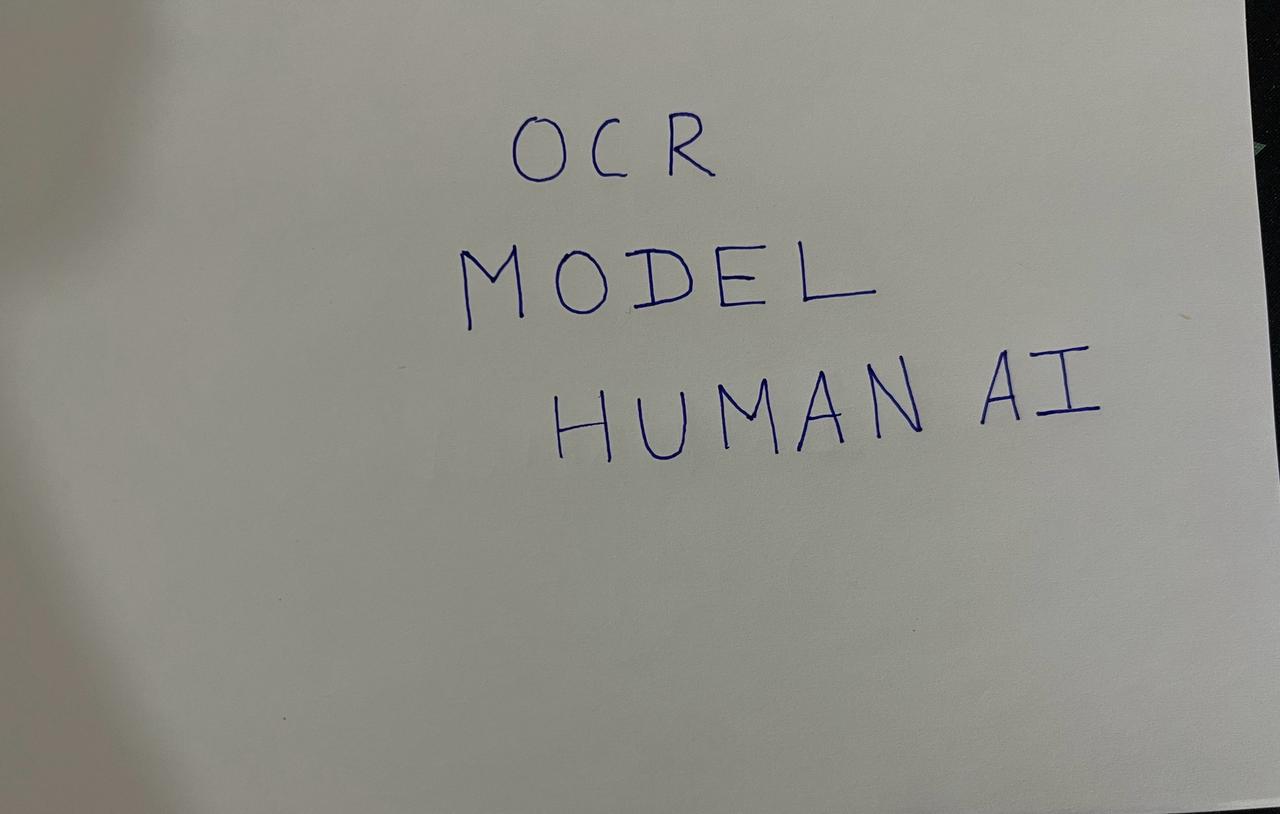 OCR
MODEL
HUMAN AI